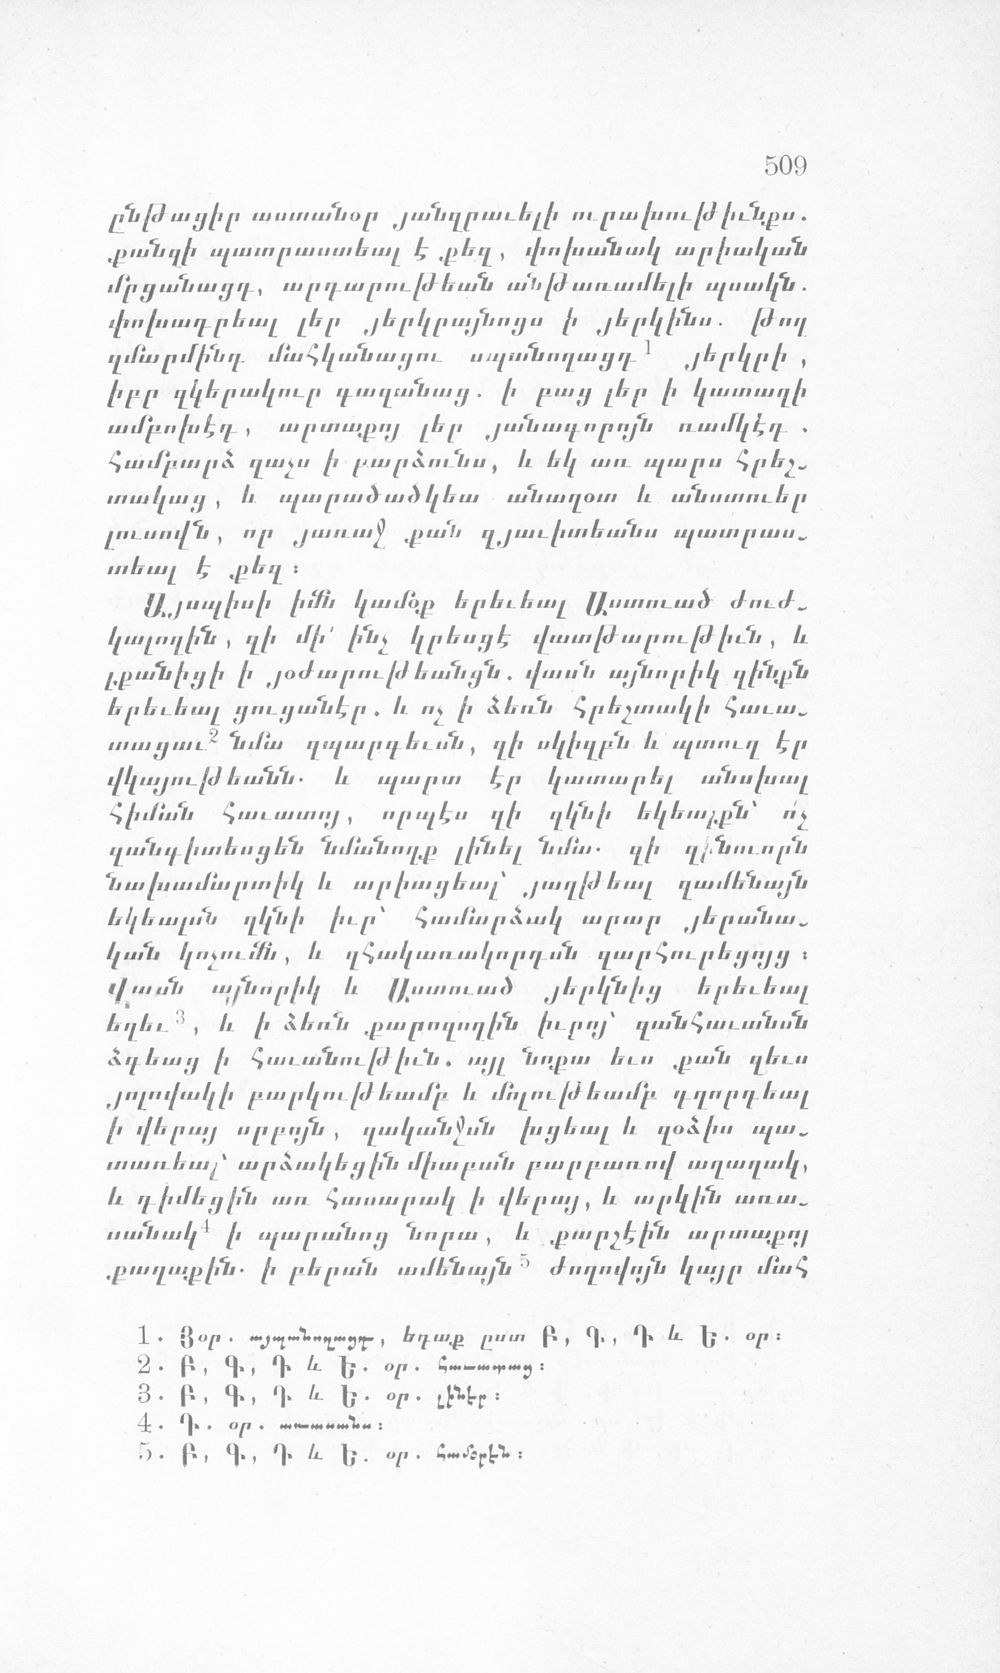 509
ընթացիր աստանօր յանզրաւելի ուրախութիւնքս.
քանզի պատրաստեալ է քեզ, փոխանակ արիական
մրցանացդ, արդարութեան անթառամելի պսակն.
փոխադրեալ լեր յերկրայնոցս ի յերկինս. թող
զմարմինդ մահկանացու սպանողացդ 1 յերկրի,
իբր զկերակուր գազանաց. ի բաց լեր ի կատաղի
ամբոխէդ, արտաքոյ լեր յանագորոյն ռամկէդ.
Համբարձ զաչս ի բարձունս, և եկ առ պարս Հրեշ-
տակաց, և պարածածկեա անաղօտ և անստուեր
լուսովն, որ յառաջ քան զյաւիտեանս պատրաս-
տեալ է քեզ:
Այսպիսի իմն կամօք երեւեալ Աստուած ժուժ-
կալողին, զի մի՛ ինչ կրեսցէ վատթարութիւն, և
լքանիցի ի յօժարութեանցն. վասն այնորիկ զինքն
երեւեալ ցուցանէր. և ոչ ի ձեռն Հրեշտակի Հաւա-
տացաւ 2 նմա զպարգեւսն, զի սկիզբն և պտուղ էր
վկայութեանն. և պարտ էր կատարել անսխալ
Հիման Հաւատոյ, որպէս զի զկնի եկեալքն՝ ո՛չ
զանգիտեսցեն նմանողք լինել նմա. զի զինուորն
նախամարտիկ և արիացեալ՝ յաղթեալ զամենայն
եկեալսն զկնի իւր՝ Համարձակ արար յերանա-
կան կոչումն, և զհակառակորդսն զարհուրեցոյց:
Վասն այնորիկ և Աստուած յերկնից երեւեալ
եղեւ 3, և ի ձեռն քարոզողին իւրոյ՝ զանհաւանսն
ձգեաց ի Հաւանութիւն. այլ նոքա եւս քան զեւս
յոլովակի բարկութեամբ և մոլութեամբ դղորդեալ
ի վերայ սրբոյն, զականջսն խցեալ և զօձիս պա-
տառեալ՝ արձակեցին միաբան բարբառով աղաղակ,
և դիմեցին առ Հասարակ ի վերայ, և արկին առա-
սանակ 4 ի պարանոց նորա, և քարշէին արտաքոյ
քաղաքին. ի բերան ամենայն 5 ժողովոյն կայր մահ
1. Յօր. այպանողացդ, եդաք ըստ Բ, Գ, Դ և Ե. օր:
2. Բ, Գ, Դ և Ե. օր. հաւատաց:
3. Բ, Գ, Դ և Ե. օր. լինէր:
4. Դ. օր. առասանս:
5. Բ, Գ, Դ և Ե. օր. համօրէն: